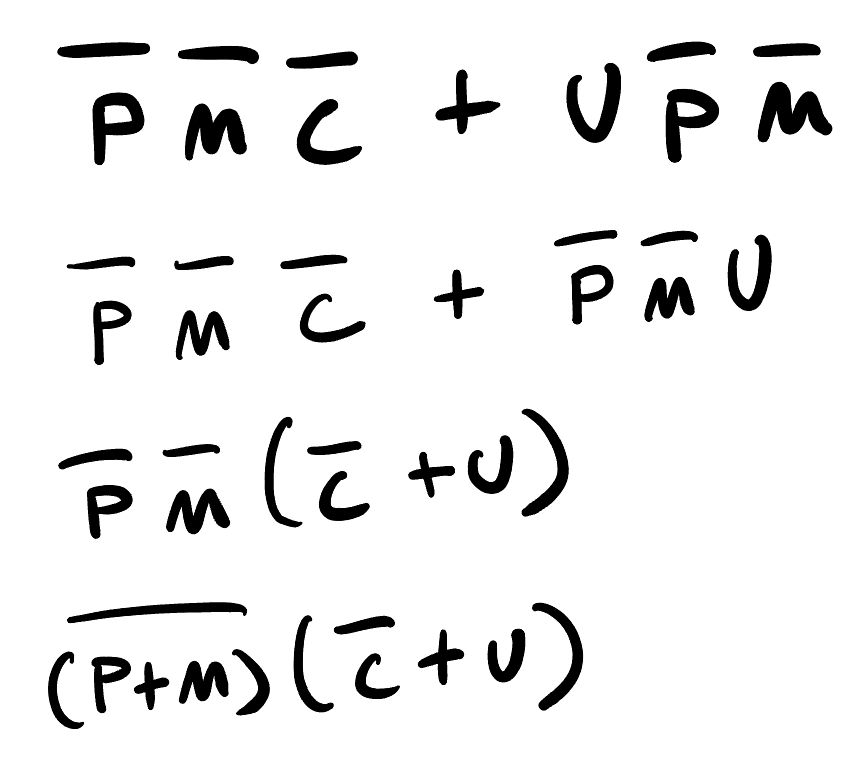 P̅ M̅ C̅ + U P̅ M̅
P̅ M̅ C̅ + P̅ M̅ U
P̅ M̅ (C̅ + U)
(P̅+̅M̅) (C̅ + U)